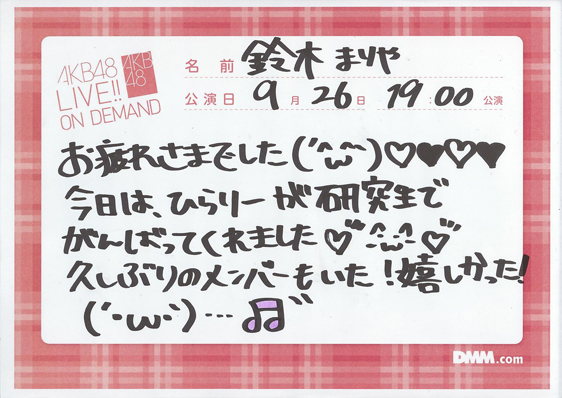 AKB48
LIVE!!
ON DEMAND
AKB
48
名 前 鈴木 まりや
公演日 9月26日 19:00 公演
お疲れさまでした(´^ω^)♡♥♡♥
今日は、ひらりーが研究生で
がんばってくれました♡^ω^♡
久しぶりのメンバーもいた!嬉しかった!
(´・ω・`)…🎵
DMM.com